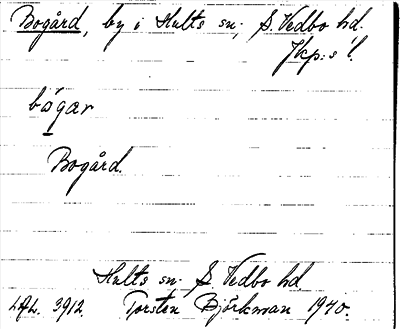 Bogård, by i Hults sn, S. Vedbo hd.
Jkp:s l.
bógar
Bogård.
Hults sn. S. Vedbo hd
LAL. 3912. Torsten Björkman 1940.